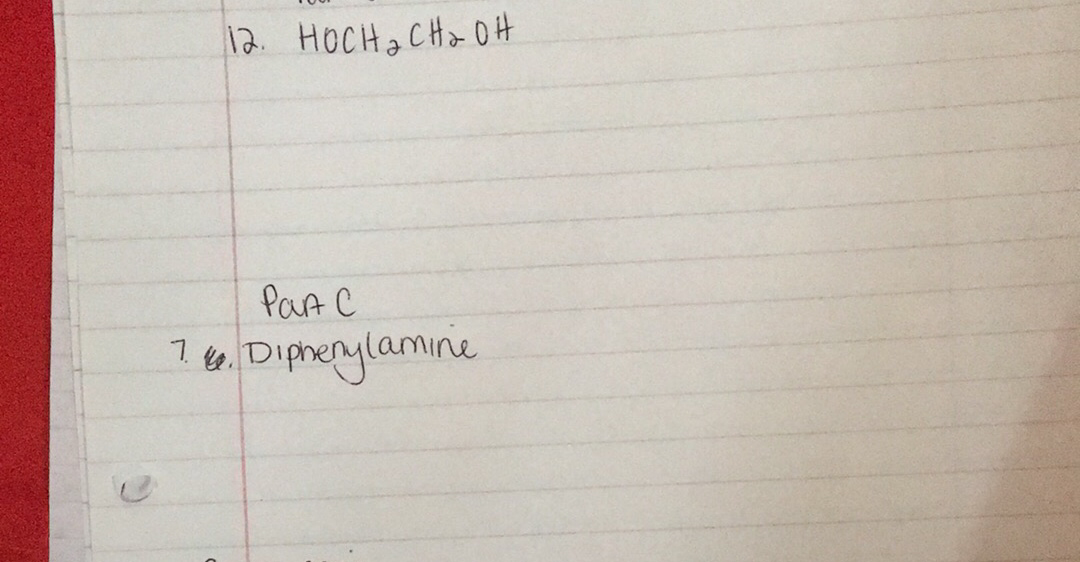 12. HOCH₂CH₂OH
Part C
7. Diphenylamine